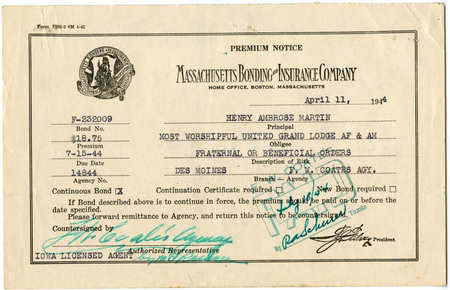 Form F200-2 8M 4-42
PREMIUM NOTICE
MASSACHUSETTS BONDING AND INSURANCE COMPANY
HOME OFFICE, BOSTON, MASSACHUSETTS
April 11, 1944
F-232009 HENRY AMBROSE MARTIN
Bond No. Principal
$18.75 MOST WORSHIPFUL UNITED GRAND LODGE AF & AM
Premium Obligee
7-15-44 FRATERNAL OR BENEFICIAL ORDERS
Due Date Description of Risk
14844 DES MOINES F. W. COATES AGY.
Agency No. Branch Agency
Continuous Bond X Continuation Certificate required New Bond required
If Bond described above is to continue in force, the premium should be paid on or before the
date specified.
Please forward remittance to Agency, and return this notice to be countersigned.
Countersigned by
PAID
Thanks
By
President.
Authorized Representative
IOWA LICENSED AGENT